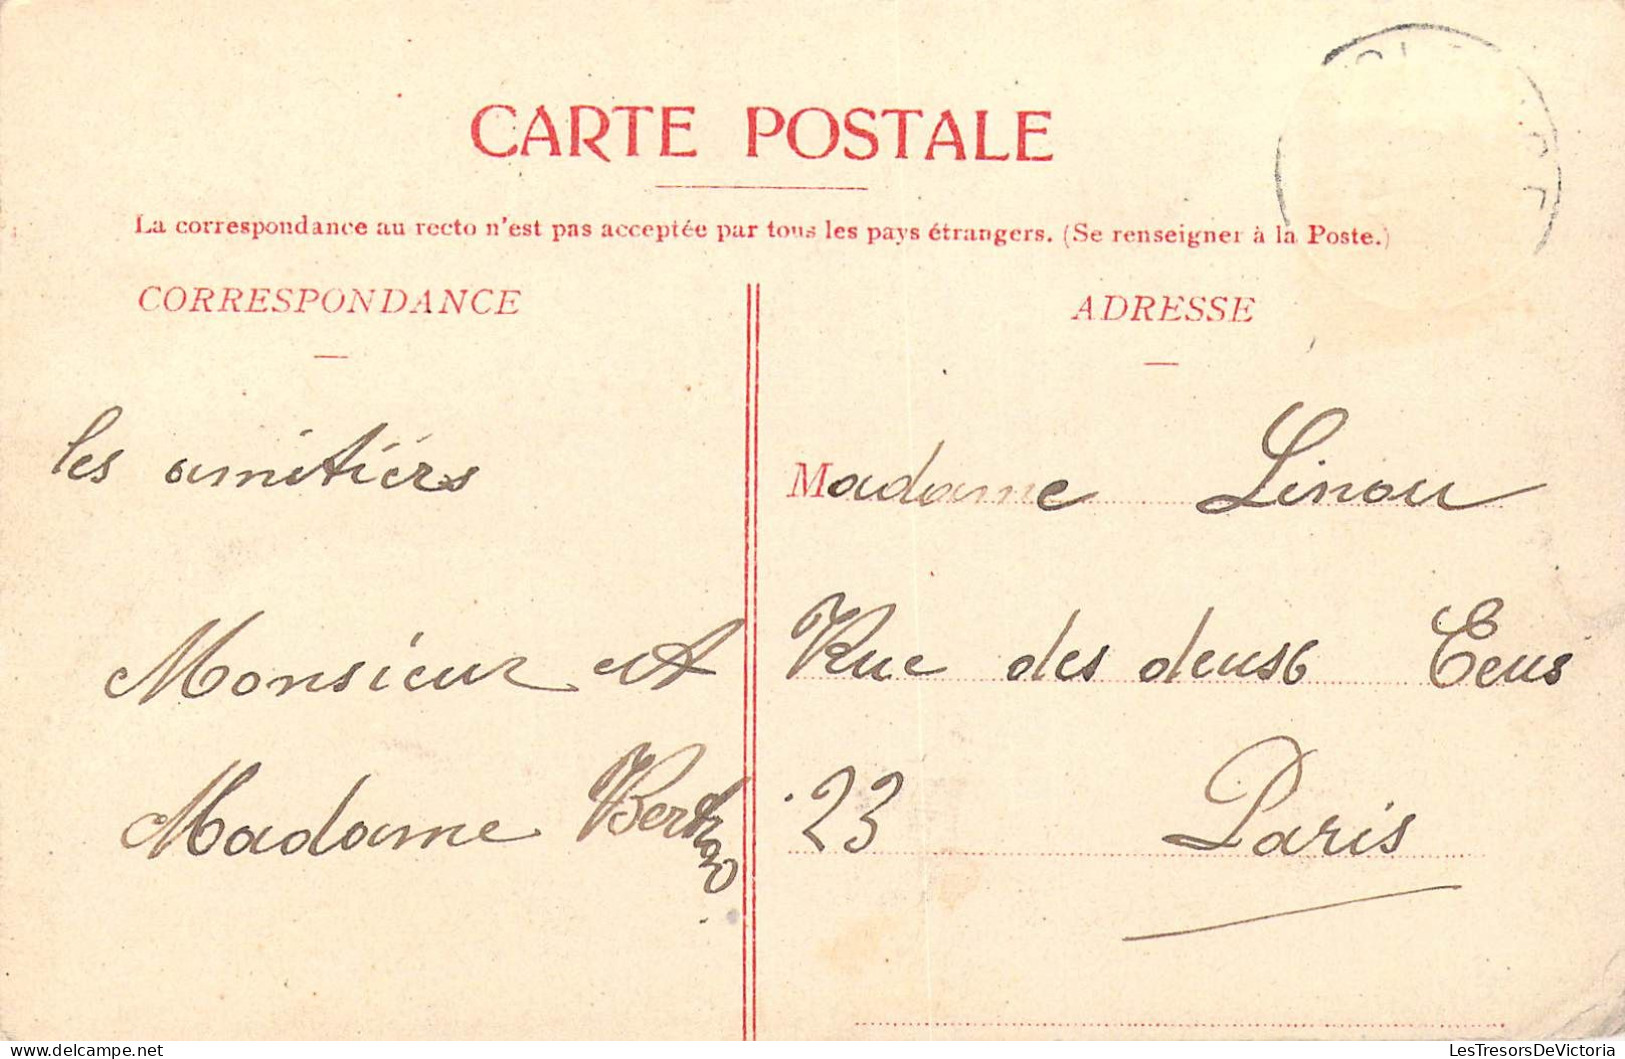 CARTE POSTALE
La correspondance au recto n'est pas acceptée par tous les pays étrangers. (Se renseigner à la Poste.)
CORRESPONDANCE
les amitiérs
Monsieur et
Madame
ADRESSE
Madame Linou
Rue des deux Ecus
23 Paris
LesTresorsDeVictoria